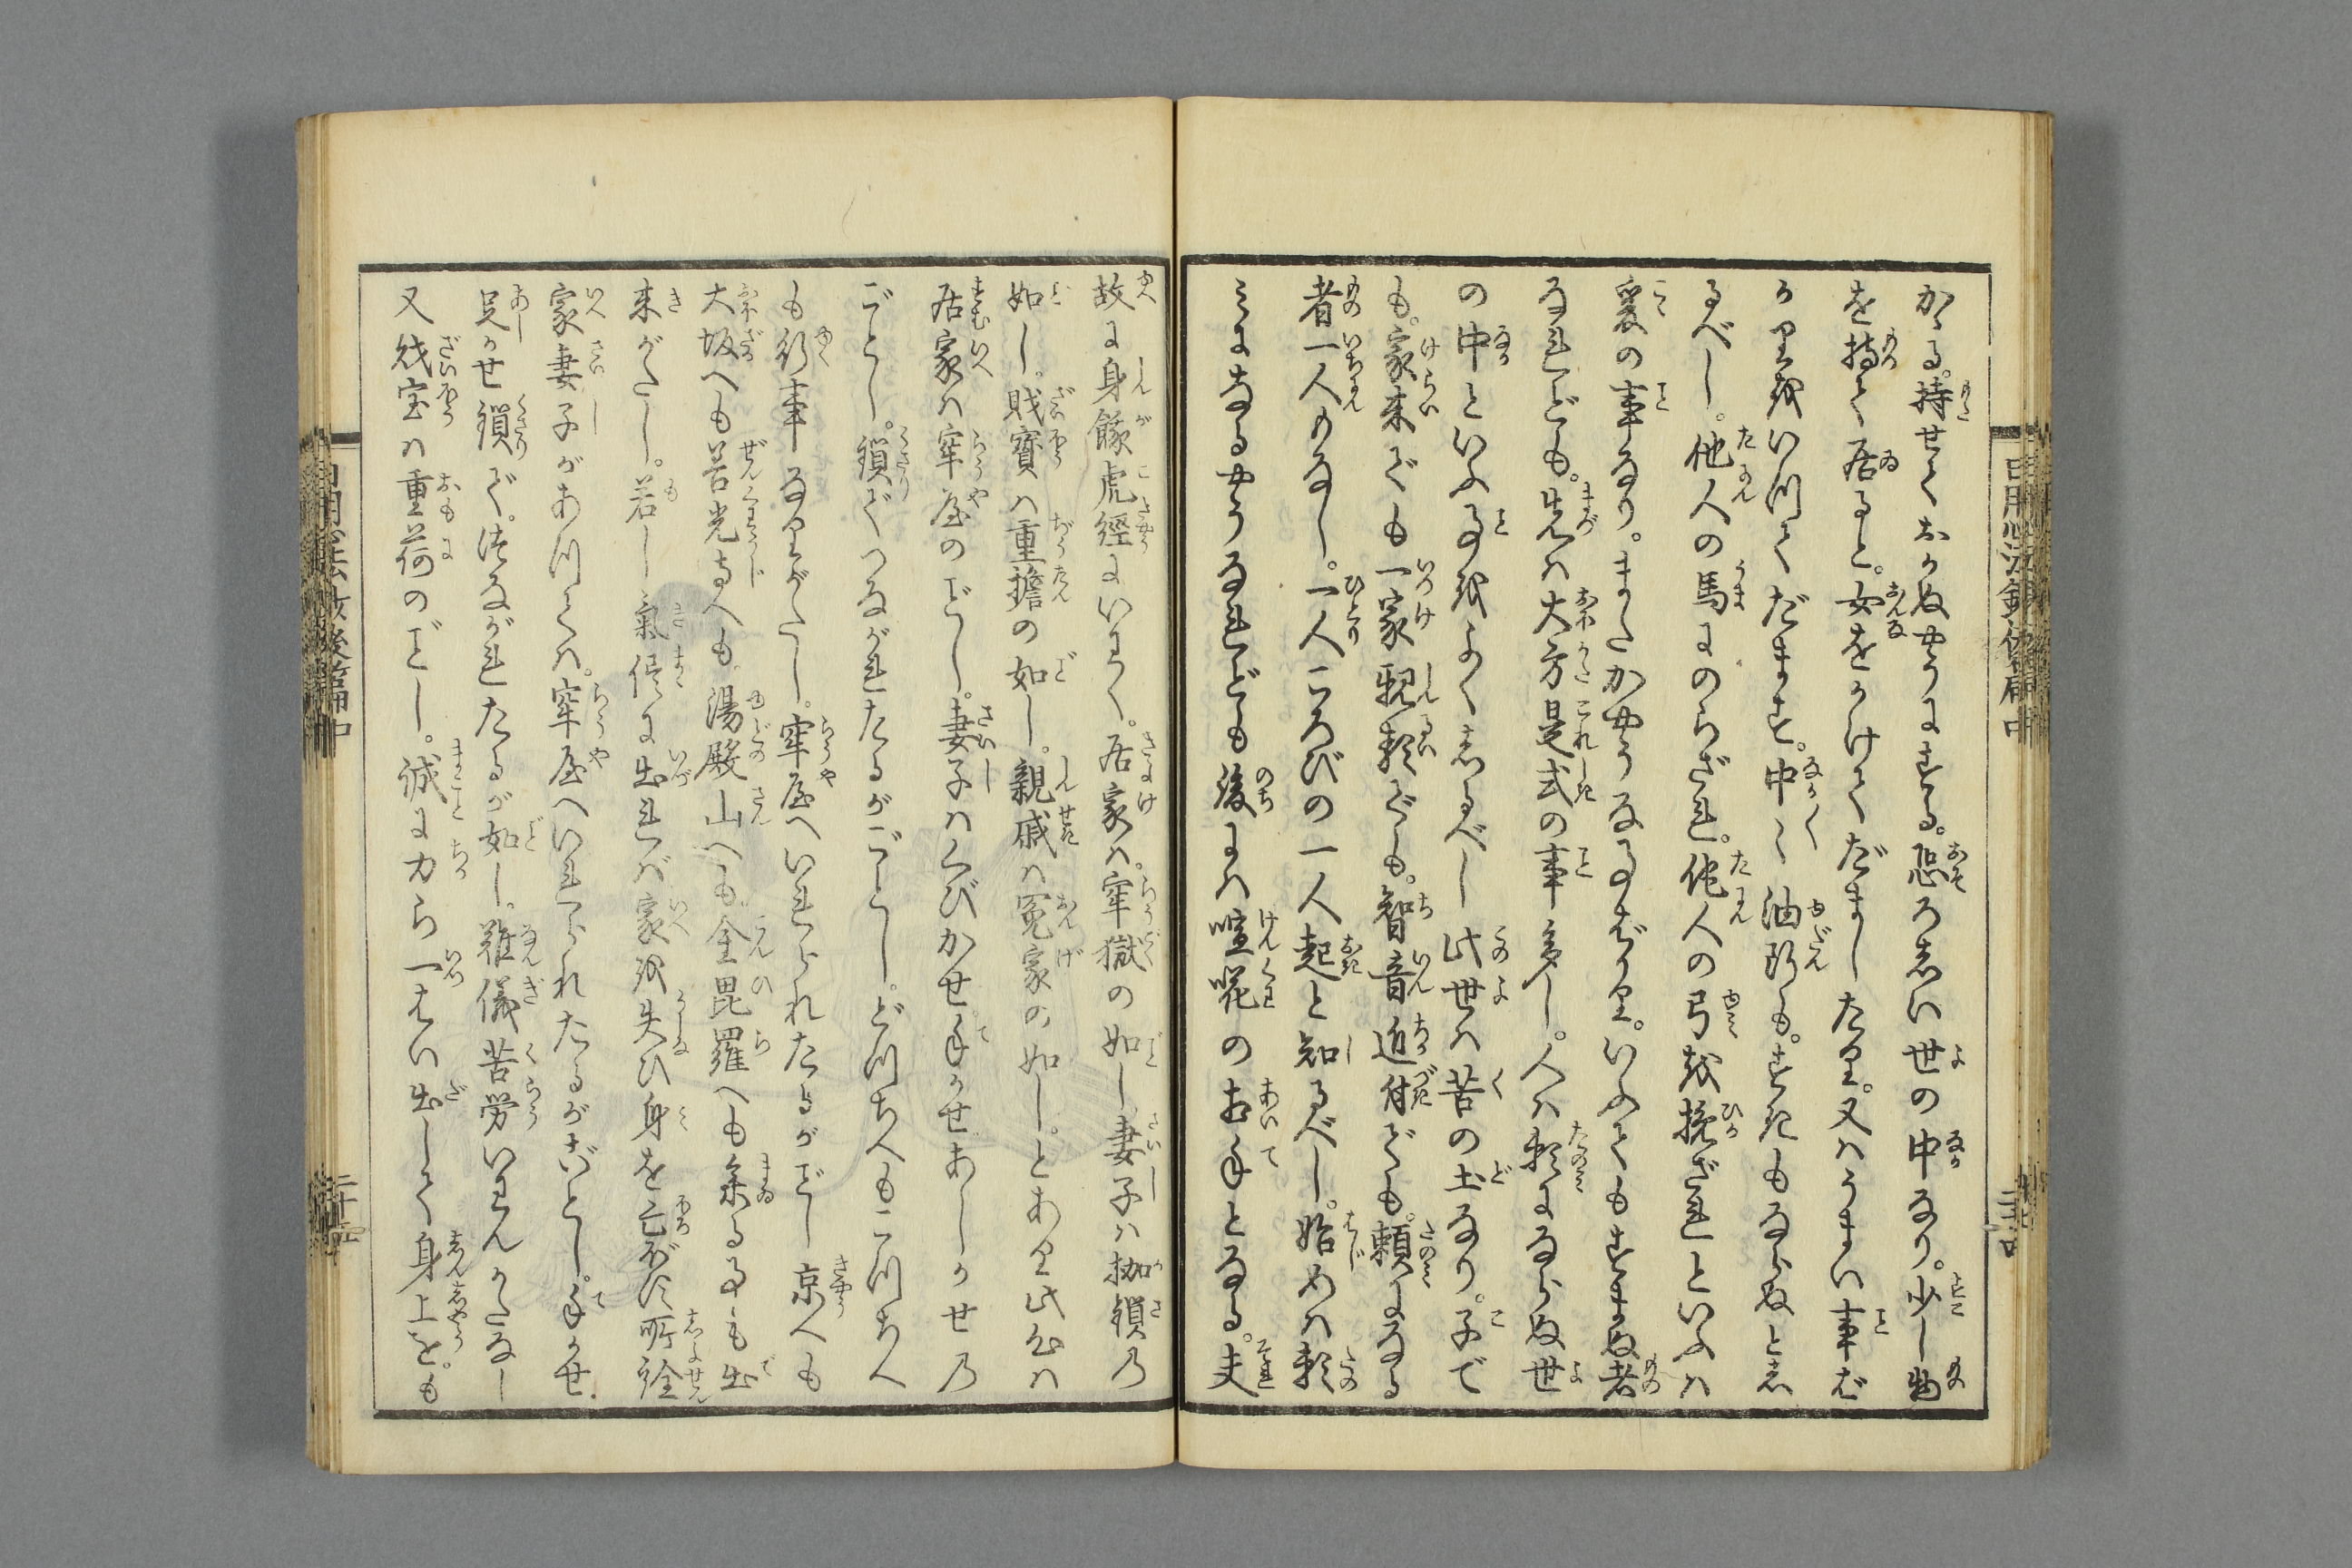 かゝる。持せておかぬやうにする。恐ろしい世の中なり。少し物
を持て居ると。女をかけてだましたり。又はうまい事ば
かり云いつてだます。中〳〵油断も。すきもならぬとし
るべし。他人の馬にのらざれ。他人の弓を挽ざれといふは
爰の事なり。またかやうな事ばかり。いふてもすまぬ者
なれども。先は大方是式の事多し。人は頼にならぬ世
の中といふ事をよくしるべし此世は苦の土なり。子で
も。家来でも一家親類でも。智音近付でも。頼になる
者一人もなし。一人ころびの一人起と知るべし。始めは頼
みになるやうなれども後には喧嘩のお相手となる。夫
故に身餧虎經にいわく。居家は。牢獄の如し妻子は枷鎖乃
如し。財寳は重擔の如し。親戚は冤家の如し。とあり此心は
居家は牢屋のごとし。妻子はくびかせ手かせあしかせ乃
ごとし。鎖でつながれたるがごとし。どつちへもこつちへ
も行事なりがたし。牢屋へいれられたるがごとし京へも
大坂へも善光寺へも。湯殿山へも金毘羅へも参る事も出
来がたし。若し氣侭に出れば家を失ひ身を亡ぼす所詮
家妻子があつては。牢屋へいれられたるがごとし。手かせ
足かせ鎖で。つながれたるが如し。難儀苦労いわんかたなし
又財宝は重荷のごとし。誠に力ら一はい出して身上を。も
日用心法鈔後篇中
日用心法鈔後篇中
二十四